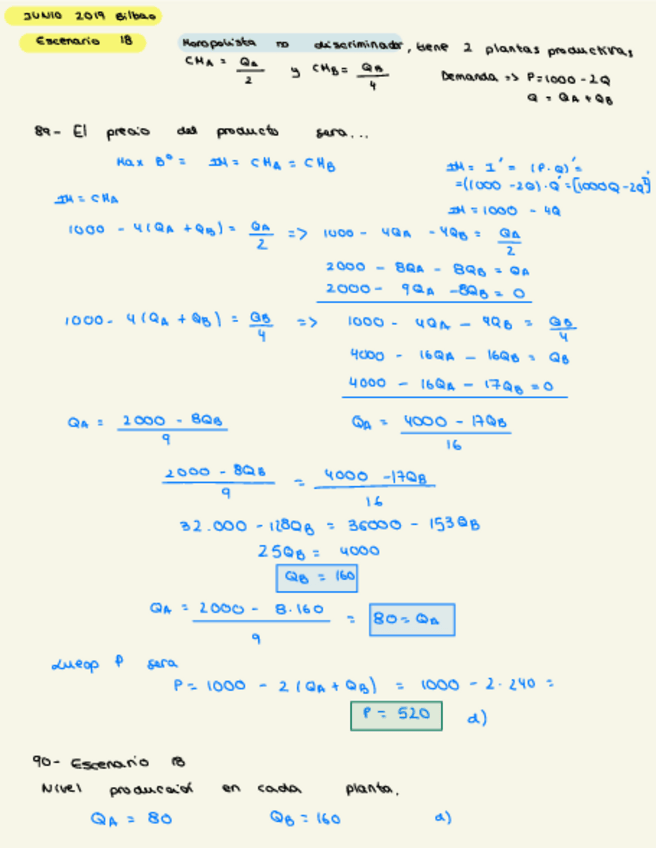 JUNIO 2019 Bilbao
Escenario 18 Monopolista no discriminador, tiene 2 plantas productivas
CMA = QA/2 y CMB = QB/4 Demanda => P=1000-2Q
Q = QA + QB
89- El precio del producto sera...
Max Bº = IM = CMA = CMB
IM = I' = (P·Q)' =
=((1000 -2Q)·Q)'=[1000Q-2Q²]'
IM = 1000 - 4Q
IM = CMA
1000 - 4(QA + QB) = QA/2 => 1000 - 4QA - 4QB = QA/2
2000 - 8QA - 8QB = QA
2000 - 9QA - 8QB = 0
1000 - 4(QA + QB) = QB/4 => 1000 - 4QA - 4QB = QB/4
4000 - 16QA - 16QB = QB
4000 - 16QA - 17QB = 0
QA = (2000 - 8QB)/9 QA = (4000 - 17QB)/16
(2000 - 8QB)/9 = (4000 - 17QB)/16
32.000 - 128QB = 36000 - 153QB
25QB = 4000
QB = 160
QA = (2000 - 8·160)/9 = 80 = QA
Luego P sera
P = 1000 - 2(QA + QB) = 1000 - 2·240 =
P = 520 d)
90- Escenario 18
Nivel producción en cada planta.
QA = 80 QB = 160 a)